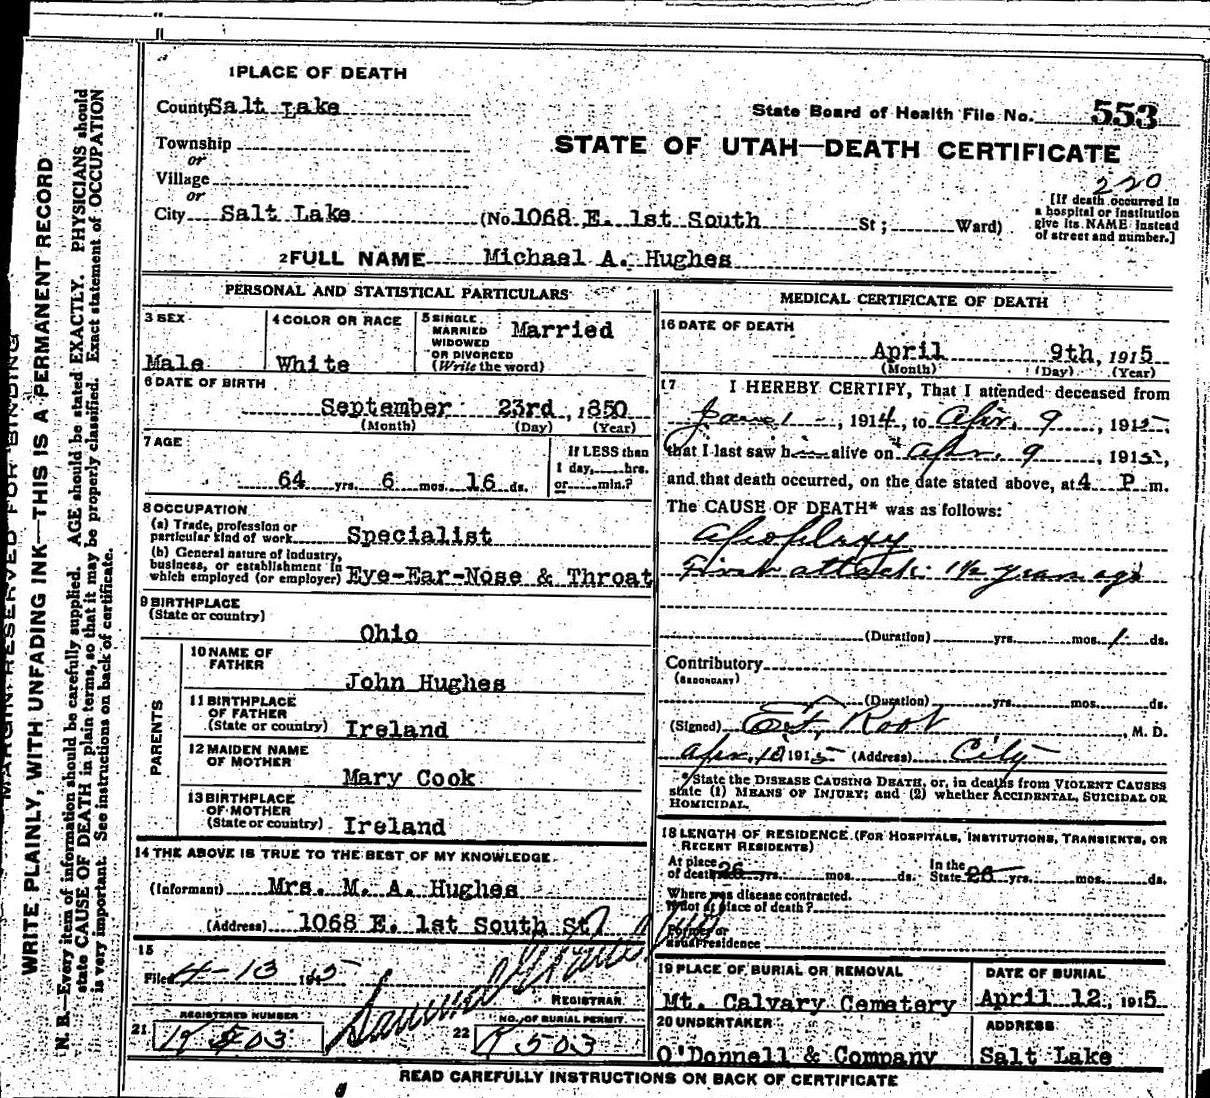 1 PLACE OF DEATH
County Salt Lake
State Board of Health File No. 553
Township
or
STATE OF UTAH—DEATH CERTIFICATE
Village
or
220
City Salt Lake (No. 1068 E. 1st South St; Ward)
[If death occurred in
a hospital or institution
give its NAME instead
of street and number.]
2 FULL NAME Michael A. Hughes
PERSONAL AND STATISTICAL PARTICULARS
3 SEX
Male
4 COLOR OR RACE
White
5 SINGLE
MARRIED
WIDOWED
OR DIVORCED
(Write the word)
Married
6 DATE OF BIRTH
September 23rd, 1850
(Month) (Day) (Year)
7 AGE
64 yrs. 6 mos. 16 ds.
If LESS than
1 day, hrs.
or min.?
8 OCCUPATION
(a) Trade, profession or
particular kind of work Specialist
(b) General nature of industry,
business, or establishment in
which employed (or employer) Eye-Ear-Nose & Throat
9 BIRTHPLACE
(State or country)
Ohio
PARENTS
10 NAME OF
FATHER
John Hughes
11 BIRTHPLACE
OF FATHER
(State or country) Ireland
12 MAIDEN NAME
OF MOTHER
Mary Cook
13 BIRTHPLACE
OF MOTHER
(State or country) Ireland
14 THE ABOVE IS TRUE TO THE BEST OF MY KNOWLEDGE
(Informant) Mrs. M. A. Hughes
(Address) 1068 E. 1st South St
15
Filed 4-13 1915
REGISTRAR
REGISTERED NUMBER
21 K 503
NO. OF BURIAL PERMIT
22 K 503
MEDICAL CERTIFICATE OF DEATH
16 DATE OF DEATH
April 9th, 1915
(Month) (Day) (Year)
17 I HEREBY CERTIFY, That I attended deceased from
June 1, 1914, to Apr. 9, 1915,
that I last saw him alive on Apr. 9, 1915,
and that death occurred, on the date stated above, at 4 P m.
The CAUSE OF DEATH* was as follows:
Apoplexy
First attack 1 1/2 years ago
(Duration) yrs. mos. 1 ds.
Contributory
(SECONDARY)
(Duration) yrs. mos. ds.
(Signed) Root, M. D.
Apr. 10 1915 (Address) City
*State the DISEASE CAUSING DEATH, or, in deaths from VIOLENT CAUSES
state (1) MEANS OF INJURY; and (2) whether ACCIDENTAL, SUICIDAL OR
HOMICIDAL.
18 LENGTH OF RESIDENCE (FOR HOSPITALS, INSTITUTIONS, TRANSIENTS, OR
RECENT RESIDENTS)
At place
of death 26 yrs. mos. ds.
In the
State 26 yrs. mos. ds.
Where was disease contracted.
If not at place of death?
Former or
usual residence
19 PLACE OF BURIAL OR REMOVAL
Mt. Calvary Cemetery
DATE OF BURIAL
April 12, 1915
20 UNDERTAKER
O'Donnell & Company
ADDRESS
Salt Lake
READ CAREFULLY INSTRUCTIONS ON BACK OF CERTIFICATE
MARGIN RESERVED FOR BINDING
WRITE PLAINLY, WITH UNFADING INK—THIS IS A PERMANENT RECORD
N. B.—Every item of information should be carefully supplied. AGE should be stated EXACTLY. PHYSICIANS should
state CAUSE OF DEATH in plain terms, so that it may be properly classified. Exact statement of OCCUPATION
is very important. See instructions on back of certificate.